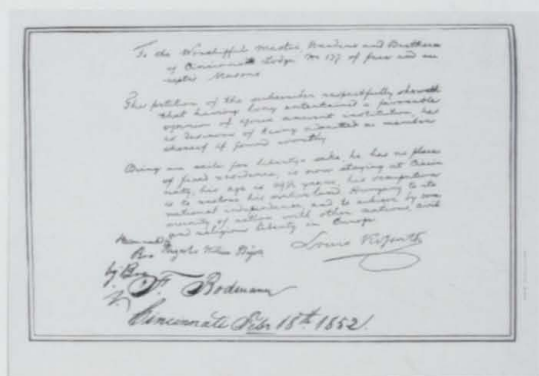 To the Worshipful Master, Wardens and Brethren
of Cincinnati Lodge No 133 of free and ac-
cepted Masons
The petition of the subscriber respectfully sheweth
that having long entertained a favorable
opinion of your ancient institution, he
is desirous of being admitted a member
thereof if found worthy
Being an exile for liberty's sake, he has no place
of fixed residence, is now staying at Cincin
nati, his age is 49½ years, his occupation
is to restore his native land Hungary to its
national independence, and to achieve by com
munity of action with other nations, civil
and religious liberty in Europe.
Louis Kossuth
Recommended by
Bro
by Bro
F. Bodmann
Cincinnati Febr 18th 1852.